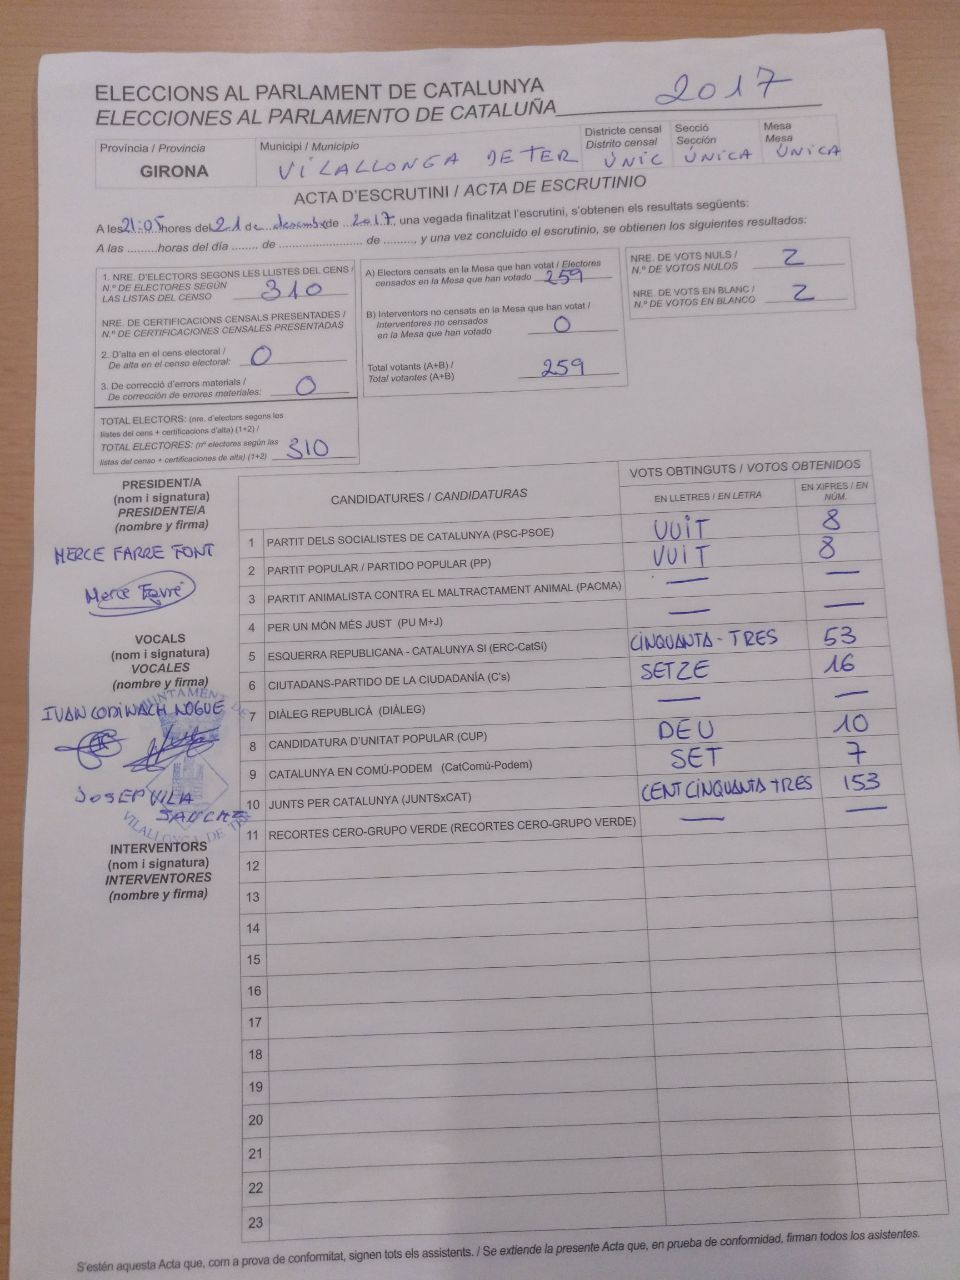 ELECCIONS AL PARLAMENT DE CATALUNYA
ELECCIONES AL PARLAMENTO DE CATALUÑA 2017
Província / Provincia
GIRONA
Municipi / Municipio
VILALLONGA DE TER
Districte censal
Distrito censal
ÚNIC
Secció
Sección
ÚNICA
Mesa
Mesa
ÚNICA
ACTA D'ESCRUTINI / ACTA DE ESCRUTINIO
A les 21:05 hores del 21 de desembre de 2017, una vegada finalitzat l'escrutini, s'obtenen els resultats següents:
A las .........horas del día ........ de ......................... de ........., y una vez concluido el escrutinio, se obtienen los siguientes resultados:
1. NRE. D'ELECTORS SEGONS LES LLISTES DEL CENS /
N.º DE ELECTORES SEGÚN
LAS LISTAS DEL CENSO 310
NRE. DE CERTIFICACIONS CENSALS PRESENTADES /
N.º DE CERTIFICACIONES CENSALES PRESENTADAS
2. D'alta en el cens electoral /
De alta en el censo electoral: 0
3. De correcció d'errors materials /
De corrección de errores materiales: 0
TOTAL ELECTORS: (nre. d'electors segons les
llistes del cens + certificacions d'alta) (1+2) /
TOTAL ELECTORES: (nº electores según las
listas del censo + certificaciones de alta) (1+2) 310
A) Electors censats en la Mesa que han votat / Electores
censados en la Mesa que han votado 259
B) Interventors no censats en la Mesa que han votat /
Interventores no censados
en la Mesa que han votado 0
Total votants (A+B) /
Total votantes (A+B) 259
NRE. DE VOTS NULS /
N.º DE VOTOS NULOS 2
NRE. DE VOTS EN BLANC /
N.º DE VOTOS EN BLANCO 2
PRESIDENT/A
(nom i signatura)
PRESIDENTE/A
(nombre y firma)
MERCE FARRE FONT
Merce Farré
VOCALS
(nom i signatura)
VOCALES
(nombre y firma)
IVAN CODINACH NOGUE
JOSEP VILA
SANCHZ
VILALLONGA DE TER
INTERVENTORS
(nom i signatura)
INTERVENTORES
(nombre y firma)
CANDIDATURES / CANDIDATURAS
VOTS OBTINGUTS / VOTOS OBTENIDOS
EN LLETRES / EN LETRA
EN XIFRES / EN
NÚM.
1 PARTIT DELS SOCIALISTES DE CATALUNYA (PSC-PSOE) VUIT 8
2 PARTIT POPULAR / PARTIDO POPULAR (PP) VUIT 8
3 PARTIT ANIMALISTA CONTRA EL MALTRACTAMENT ANIMAL (PACMA) — —
4 PER UN MÓN MÉS JUST (PU M+J) — —
5 ESQUERRA REPUBLICANA - CATALUNYA SI (ERC-CatSí) CINQUANTA-TRES 53
6 CIUTADANS-PARTIDO DE LA CIUDADANÍA (C's) SETZE 16
7 DIÀLEG REPUBLICÀ (DIÀLEG) — —
8 CANDIDATURA D'UNITAT POPULAR (CUP) DEU 10
9 CATALUNYA EN COMÚ-PODEM (CatComú-Podem) SET 7
10 JUNTS PER CATALUNYA (JUNTSxCAT) CENT CINQUANTA TRES 153
11 RECORTES CERO-GRUPO VERDE (RECORTES CERO-GRUPO VERDE) — —
12
13
14
15
16
17
18
19
20
21
22
23
S'estén aquesta Acta que, com a prova de conformitat, signen tots els assistents. / Se extiende la presente Acta que, en prueba de conformidad, firman todos los asistentes.